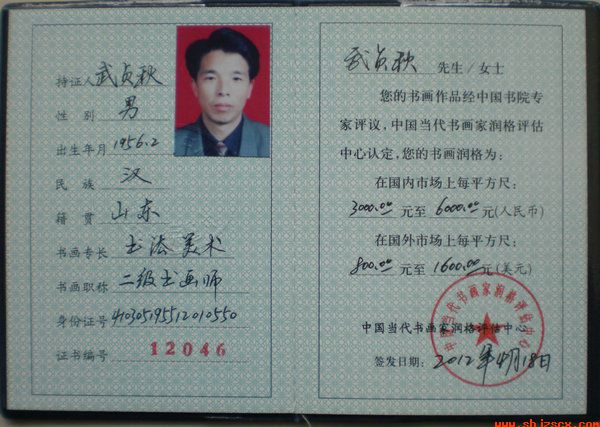 持证人 武贞秋
性别 男
出生年月 1956.2
民族 汉
籍贯 山东
书画专长 书法美术
书画职称 二级书画师
身份证号 410305195512010550
证书编号 12046
武贞秋 先生/女士
您的书画作品经中国书院专
家评议,中国当代书画家润格评估
中心认定,您的书画润格为:
在国内市场上每平方尺:
3000.00 元至 6000.00 元(人民币)
在国外市场上每平方尺:
800.00 元至 1600.00 元(美元)
中国当代书画家润格评估中心
中国当代书画家润格评估中心
签发日期: 2012年4月18日
www.shjzscx.com